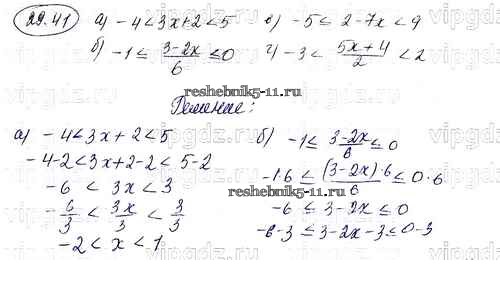 29.41 а) -4<3x+2<5 в) -5≤2-7x<9
б) -1≤(3-2x)/6≤0 г) -3<(5x+4)/2<2
reshebnik5-11.ru
Решение:
а) -4<3x+2<5
-4-2<3x+2-2<5-2
-6<3x<3
-6/3<3x/3<3/3
-2<x<1
б) -1≤(3-2x)/6≤0
-1·6≤((3-2x)·6)/6≤0·6
reshebnik5-11.ru
-6≤3-2x≤0
-6-3≤3-2x-3≤0-3